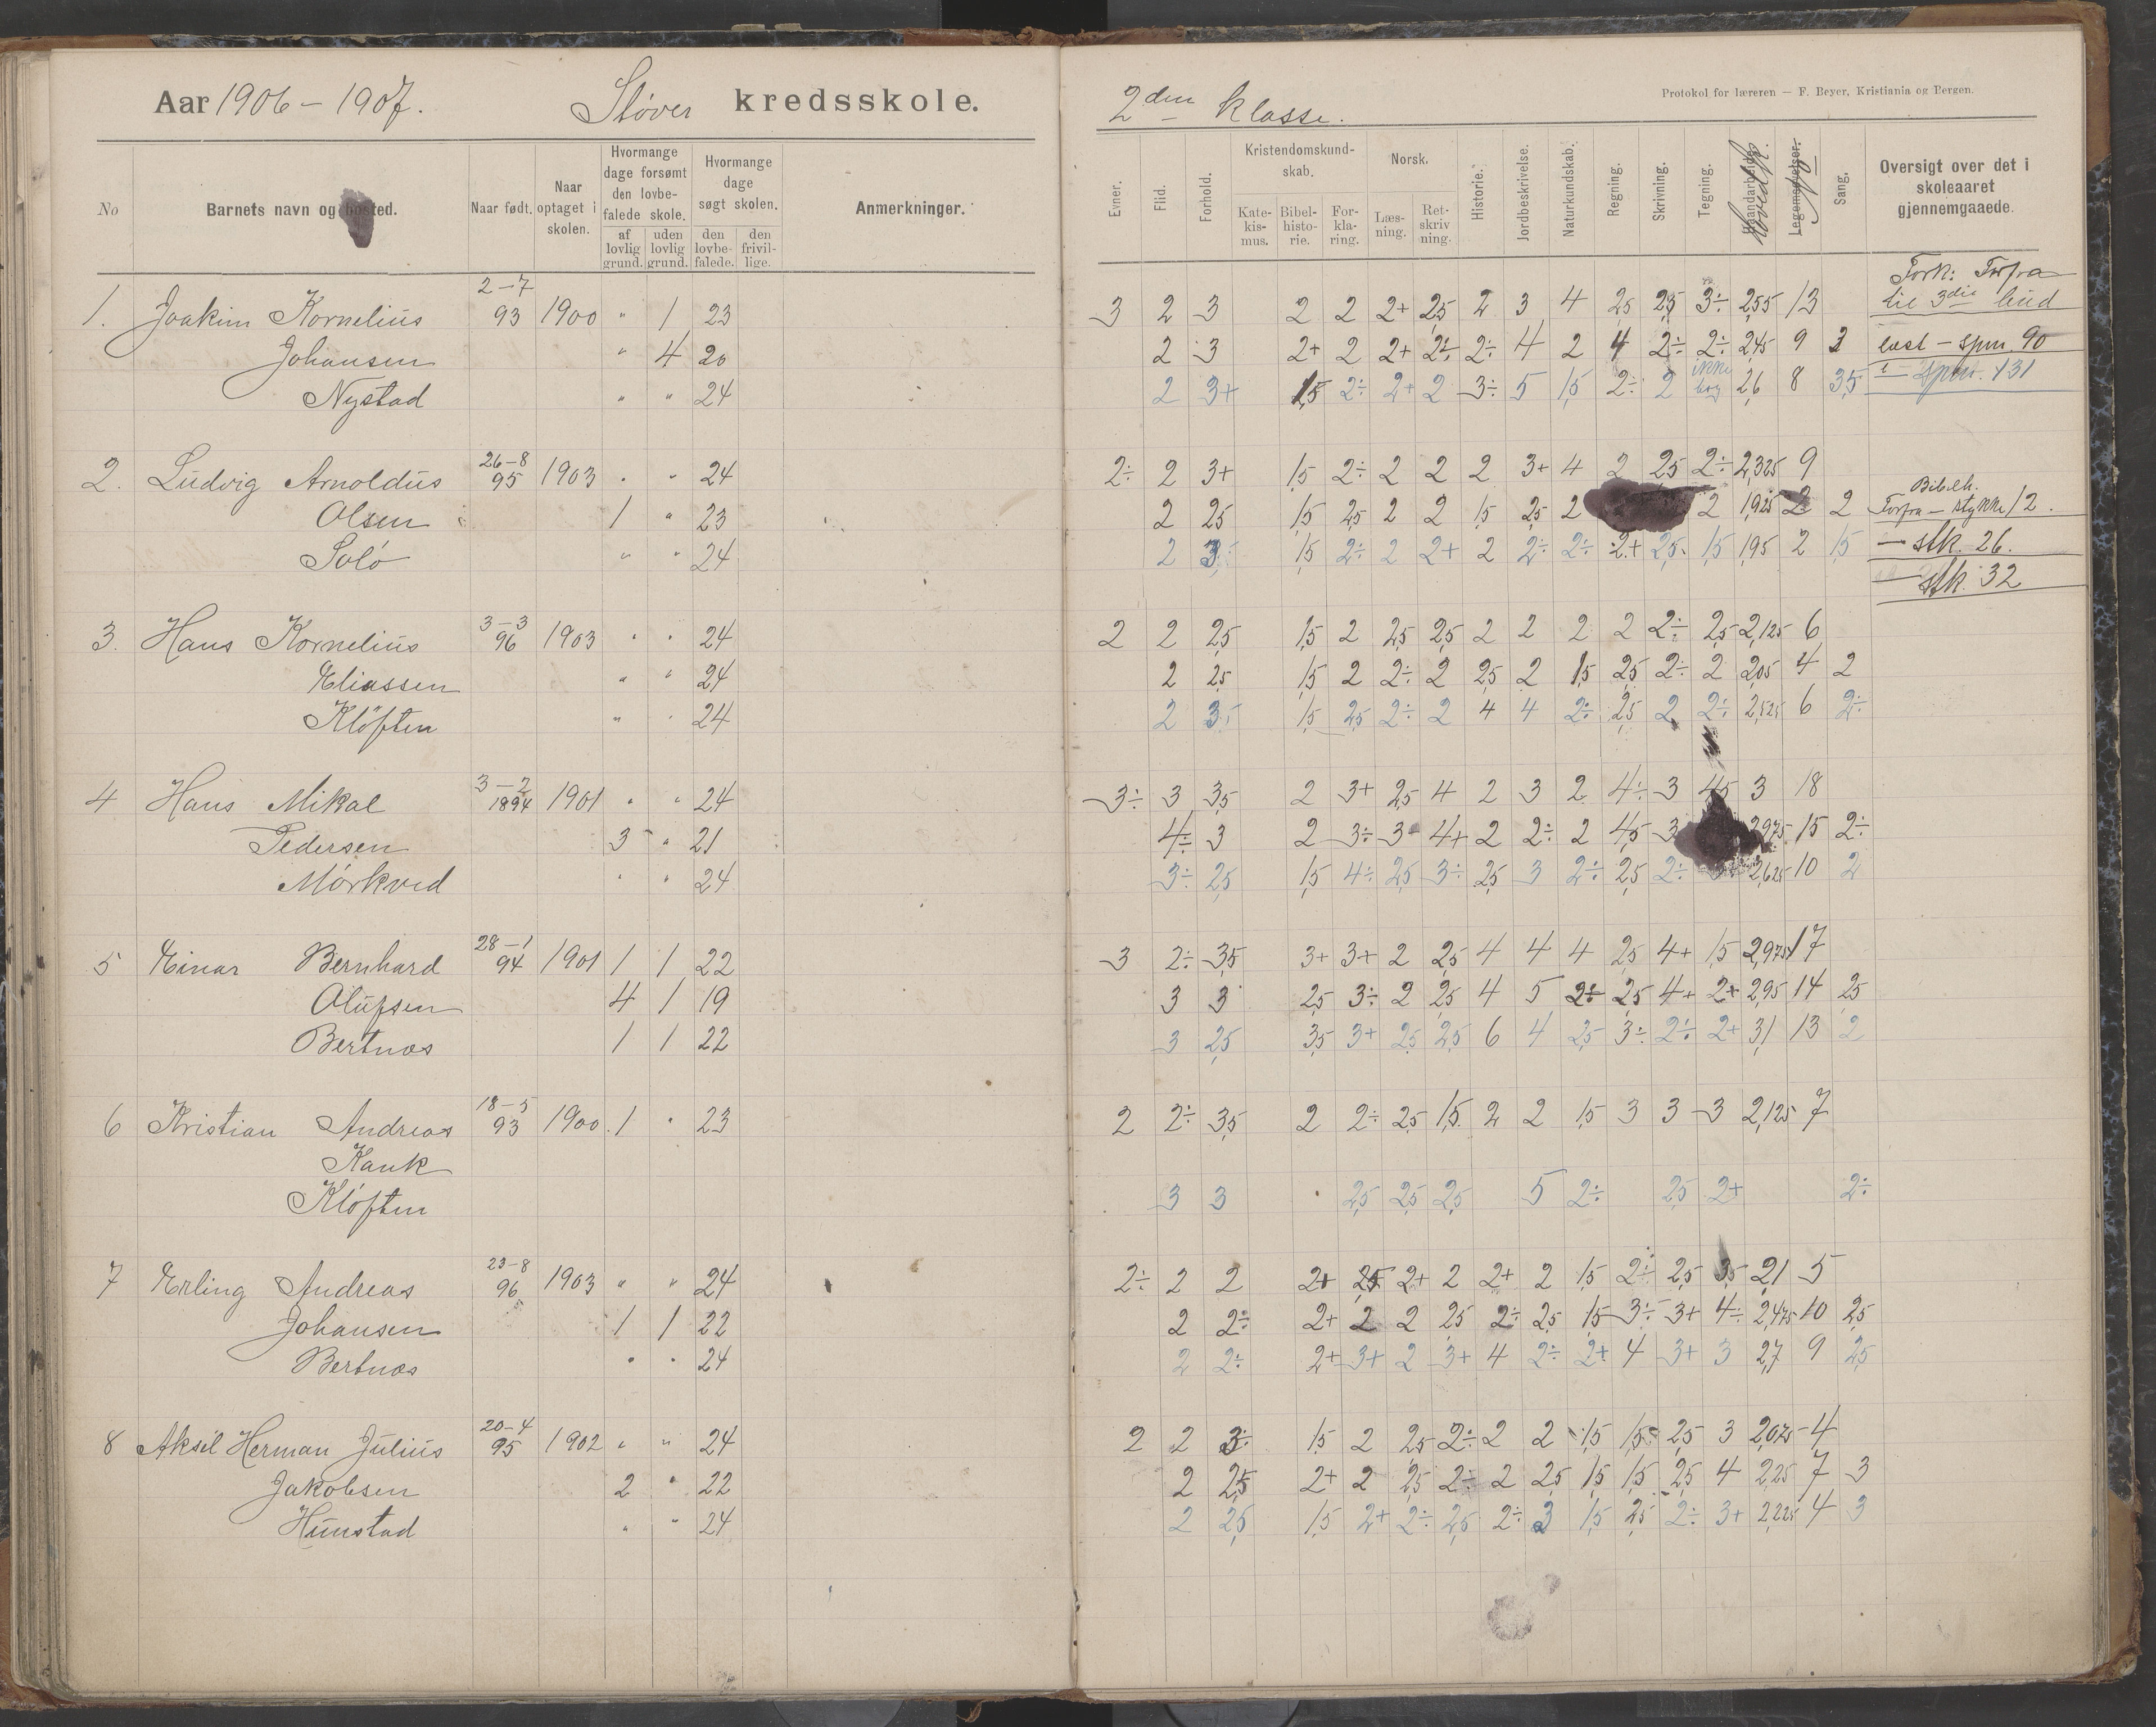 Aar 1906 – 1907. Støver kredsskole.
2den klasse.
Protokol for læreren — F. Beyer, Kristiania og Bergen.
No
Barnets navn og bosted.
Naar født.
Naar optaget i skolen.
Hvormange dage forsømt den lovbefalede skole.
af lovlig grund.
uden lovlig grund.
Hvormange dage søgt skolen.
den lovbefalede.
den frivillige.
Anmerkninger.
Evner.
Flid.
Forhold.
Kristendomskundskab.
Katekismus.
Bibelhistorie.
Forklaring.
Norsk.
Læsning.
Retskrivning.
Historie.
Jordbeskrivelse.
Naturkundskab.
Regning.
Skrivning.
Tegning.
Haandarbeide.
Legemsøvelser.
Sang.
Oversigt over det i skoleaaret gjennemgaaede.
1. Joakim Kornelius 2–7 93 1900 " 1 23 3 2 3 2 2 2+ 2,5 2 3 4 2,5 2,5 3÷ 2,55 13 Fork: Forfra til 3die bud
Johansen " 4 20 2 3 2+ 2 2+ 2÷ 2÷ 4 2 4 2÷ 2÷ 2,45 9 3 – spm. 90
Nystad " " 24 2 3+ 1,5 2÷ 2+ 2 3÷ 5 1,5 2÷ 2 ikke 2,6 8 3,5 – spm. 131
2. Ludvig Arnoldus 26–8 95 1903 " " 24 2÷ 2 3+ 1,5 2÷ 2 2 2 3+ 4 2 2,5 2÷ 2,325 9
Olsen 1 " 23 2 2,5 1,5 2,5 2 2 1,5 2,5 2 2 1,925 2 2 Bibelh. Forfra – stykke 12.
Solö " " 24 2 3 1,5 2÷ 2 2+ 2 2÷ 2÷ 2+ 2,5 1,5 1,95 2 1,5 — stk. 26.
— stk. 32
3. Hans Kornelius 3–3 96 1903 " " 24 2 2 2,5 1,5 2 2,5 2,5 2 2 2 2 2÷ 2,5 2,125 6
Eliassen " " 24 2 2,5 1,5 2 2÷ 2 2,5 2 1,5 2,5 2÷ 2 2,05 4 2
Klöften " " 24 2 3 1,5 2,5 2÷ 2 4 4 2÷ 2,5 2 2÷ 2,525 6 2÷
4 Hans Mikal 3–2 1894 1901 " " 24 3÷ 3 3,5 2 3+ 2,5 4 2 3 2 4÷ 3 4,5 3 18
Pedersen 3 " 21 4÷ 3 2 3÷ 3 4+ 2 2÷ 2 4,5 3 2,975 15 2÷
Mörkved " " 24 3÷ 2,5 1,5 4÷ 2,5 3÷ 2,5 3 2÷ 2,5 2÷ 2,625 10 2
5 Einar Bernhard 28–1 94 1901 1 1 22 3 2÷ 3,5 3+ 3+ 2 2,5 4 4 4 2,5 4+ 1,5 2,975 17
Olufsen 4 1 19 3 3 2,5 3÷ 2 2,5 4 5 2÷ 2,5 4+ 2+ 2,95 14 2,5
Bertnæs 1 1 22 3 2,5 3,5 3+ 2,5 2,5 6 4 2,5 3÷ 2÷ 2+ 3,1 13 2
6 Kristian Andreas 18–5 93 1900 1 " 23 2 2÷ 3,5 2 2÷ 2,5 1,5 2 2 1,5 3 3 3 2,125 7
Kank
Klöften 3 3 2,5 2,5 2,5 5 2÷ 2,5 2+ 2÷
7 Erling Andreas 23–8 96 1903 " " 24 2÷ 2 2 2+ 2,5 2+ 2 2+ 2 1,5 2÷ 2,5 3,5 2,1 5
Johansen 1 1 22 2 2÷ 2+ 2 2 2,5 2÷ 2,5 1,5 3÷ 3+ 4÷ 2,475 10 2,5
Bertnæs " " 24 2 2÷ 2+ 3+ 2 3+ 4 2÷ 2+ 4 3+ 3 2,7 9 2,5
8 Aksel Herman Julius 20–4 95 1902 " " 24 2 2 3÷ 1,5 2 2,5 2÷ 2 2 1,5 1,5 2,5 3 2,075 4
Jakobsen 2 " 22 2 2,5 2+ 2 2,5 2÷ 2 2,5 1,5 1,5 2,5 4 2,25 7 3
Hunstad " " 24 2 2,5 1,5 2+ 2÷ 2,5 2÷ 3 1,5 2,5 2÷ 3+ 2,225 4 3